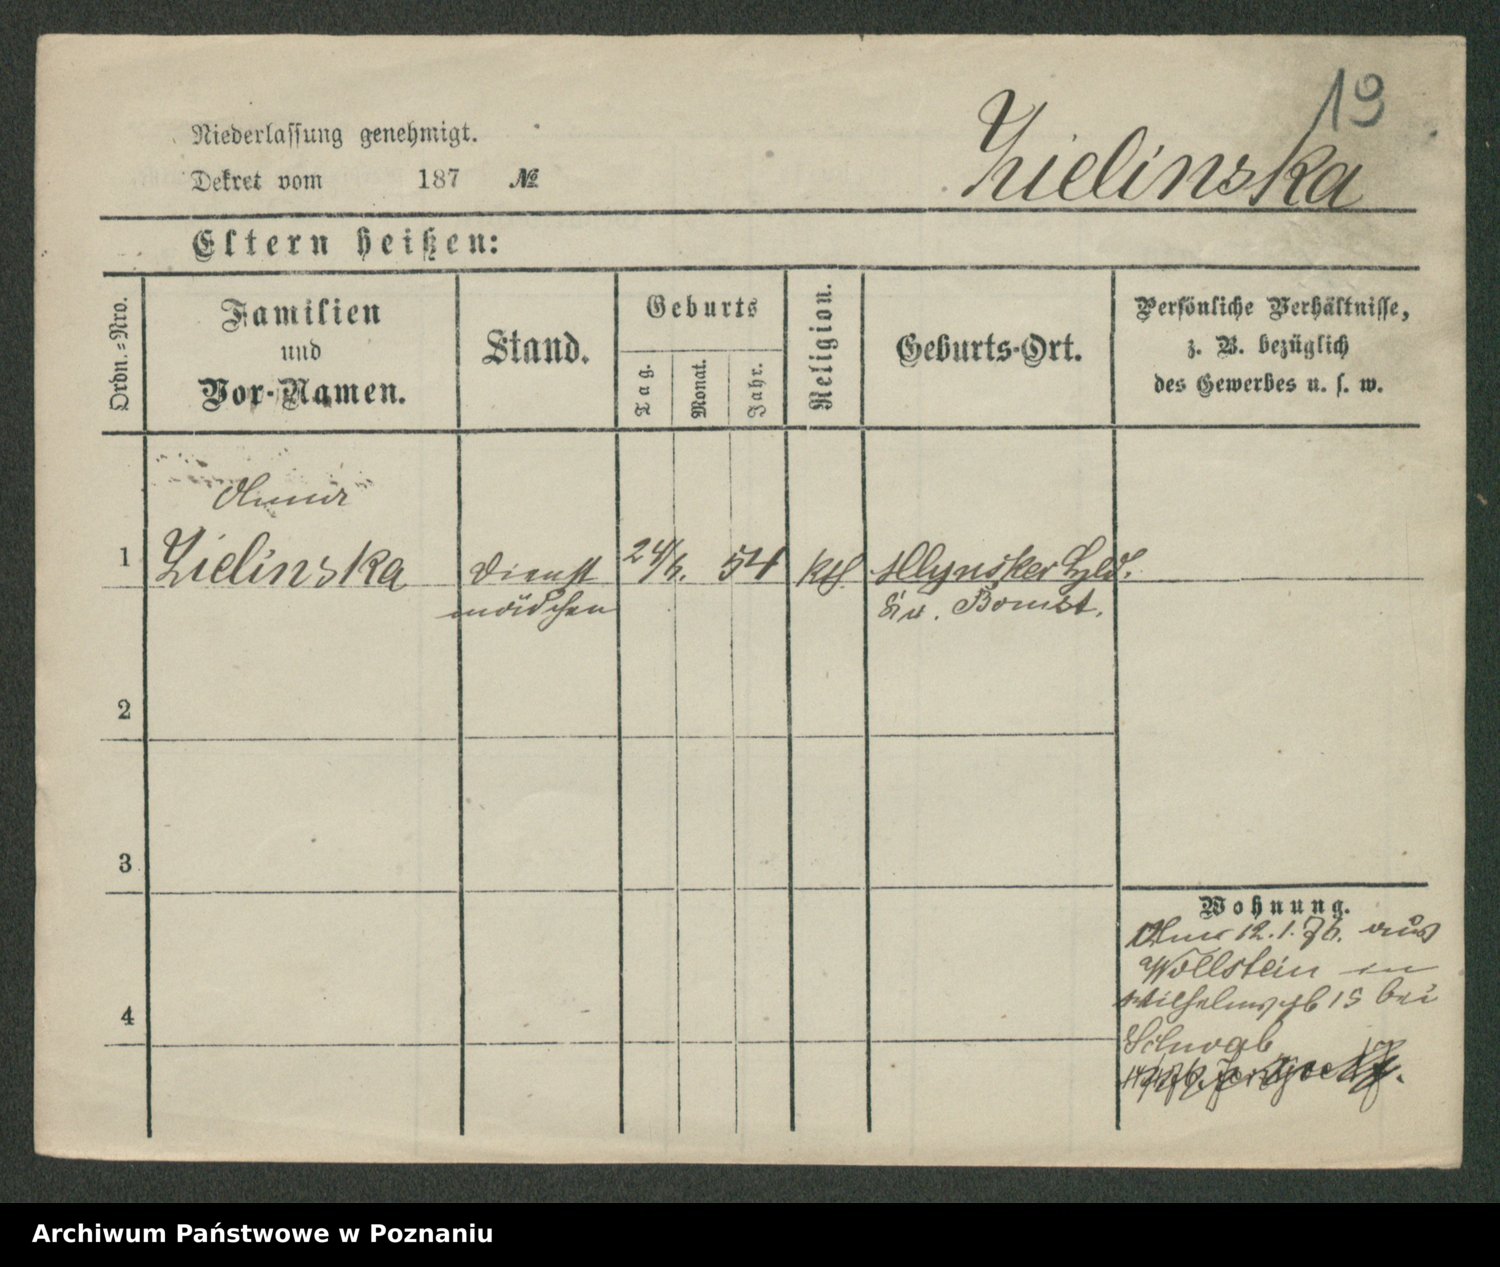 19
Zielinska
Niederlassung genehmigt.
Dekret vom 187 №
Eltern heißen:
Ordn.-Nro.
Familien
und
Vor-Namen.
Stand.
Geburts
Tag.
Monat.
Jahr.
Religion.
Geburts-Ort.
Persönliche Verhältnisse,
z. B. bezüglich
des Gewerbes u. s. w.
1
Zielinska
Dienst
mädchen
24/6. 54
kth
Hld.
Kr. Bomst.
2
3
4
Wohnung.
12.1.76. aus
Wollstein in
Wilhelmspl 15 bei
Schwab
Archiwum Państwowe w Poznaniu